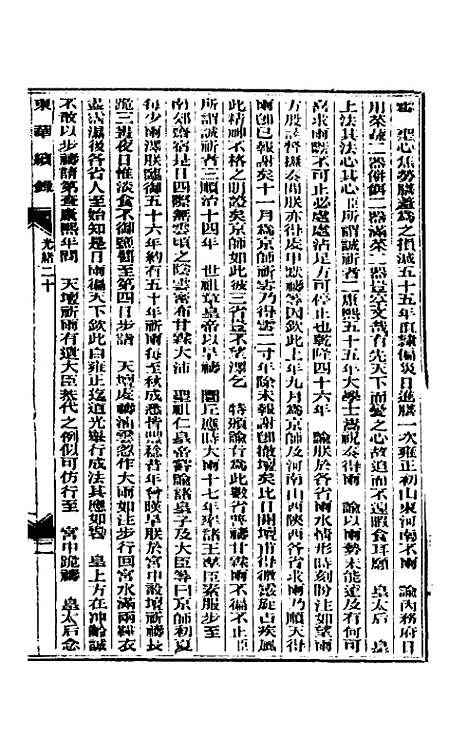 聖心焦勞膳羞爲之損減五十五年直隸偏災日進膳一次雍正初山東河南不雨 諭內務府日
用菜蔬二器餅餌二器湯菜二器是空文哉有先天下而憂之心故迫而不遑暇食耳願 皇太后 皇
上法其法心其心臣所謂誠祈者二康熙五十五年大學士嵩祝奏得雨 諭以雨勢未能遠及有何可
喜求雨既不可止必處處沾足方可停止也乾隆四十六年 諭朕於各省雨水情形時刻盼注如望雨
方殷該督撫奏聞朕亦得虔申默禱等因欽此上年九月爲京師及河南山西陝西各省求雨乃順天得
雨卽已報謝矣十一月爲京師祈雪乃得雪二寸年除未報謝卽撤壇矣此日開壇甫得微霰旋占疾風
此精神不格之明證矣京師如此彼三省豈不望澤乞 特頒諭旨爲此數省普禱甘霖雨不徧不止臣
所謂誠祈者三順治十四年 世祖章皇帝以旱禱 圜丘應時大雨十七年率諸王羣臣素服步至
南郊齋宿是日四際無雲頃之陰雲密布甘霖大沛 聖祖仁皇帝嘗諭諸皇子及大臣等曰京師初夏
每少雨澤朕臨御五十六年約有五十年祈雨每至秋成悉皆豐稔昔年曾暵旱朕於宮中設壇祈禱長
跪三晝夜日惟淡食不御鹽醬至第四日步詣 天壇虔禱油雲忽作大雨如注步行回宮水滿兩鞾衣
盡沾濕後各省人至始知是日雨徧天下欽此自雍正迄道光舉行成法其應如響 皇上方在沖齡誠
不敢以步禱請第查康熙年間 天壇祈雨有遣大臣恭代之例似可仿行至 宮中跪禱 皇太后念
東華續錄
光緒二十